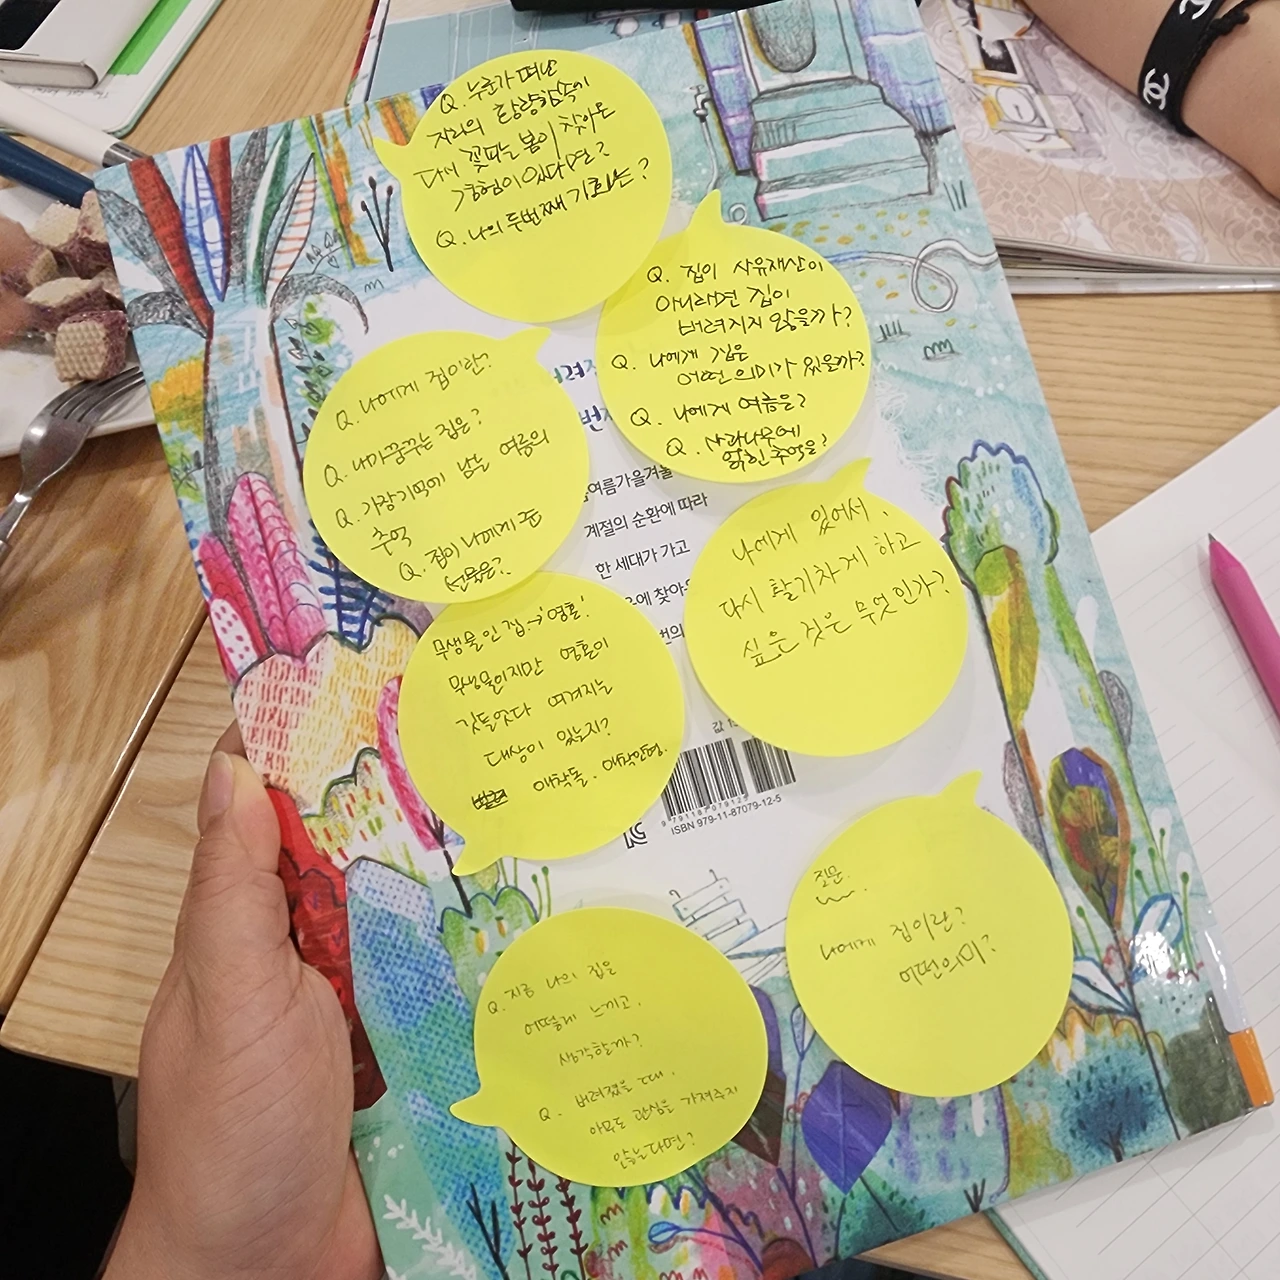 Q. 누군가 떠난
자리의 황량함 속에
다시 꽃피는 봄이 찾아온
경험이 있다면?
Q. 나의 두번째 기회는?
Q. 집이 사유재산이
아니라면 집이
버려지지 않을까?
Q. 나에게 집은
어떤 의미가 있을까?
Q. 나에게 여름은?
Q. 사과나무에
얽힌 추억은?
Q. 나에게 집이란?
Q. 내가 꿈꾸는 집은?
Q. 가장 기억에 남는 여름의
추억
Q. 집이 나에게 준
선물은?
여름가을겨울
계절의 순환에 따라
한 세대가 가고
에 찾아
나에게 있어서,
다시 활기차게 하고
싶은 것은 무엇인가?
무생물인 집→'영혼'
무생물이지만 영혼이
깃들었다 여겨지는
대상이 있는지?
애착돌. 애착인형.
값
9791187079125
ISBN 979-11-87079-12-5
질문.
나에게 집이란?
어떤의미?
Q. 지금 나의 집은
어떻게 느끼고,
생각할까?
Q. 버려졌을 때,
아무도 관심을 가져주지
않는다면?